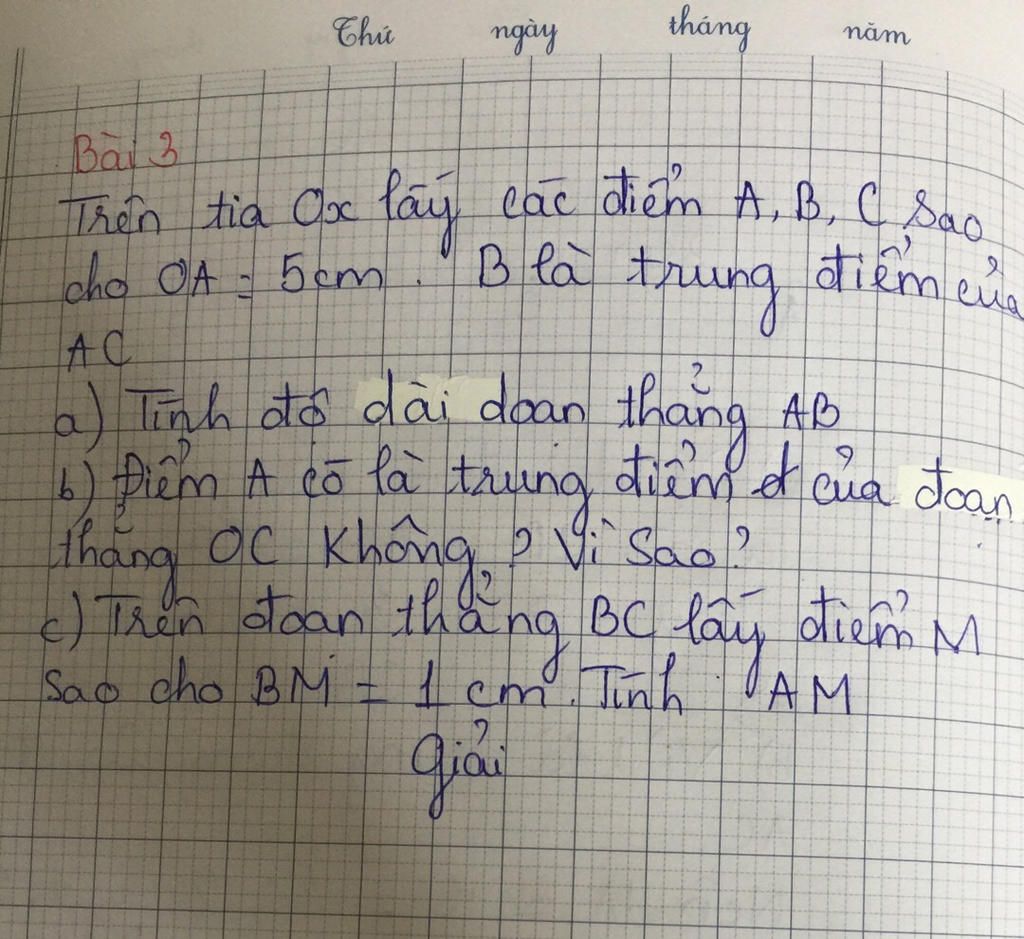 Thứ ngày tháng năm
Bài 3
Trên tia Ox lấy các điểm A, B, C sao
cho OA = 5cm. B là trung điểm của
AC
a) Tính độ dài đoạn thẳng AB
b) Điểm A có là trung điểm của đoạn
thẳng OC không? Vì sao?
c) Trên đoạn thẳng BC lấy điểm M
sao cho BM = 1 cm. Tính AM
Giải